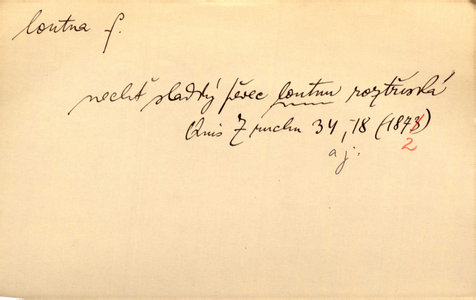 loutna f.
nechť sladký pěvec loutnu roztříská
Quis Z ruchu 34, 18 (1872)
a j.